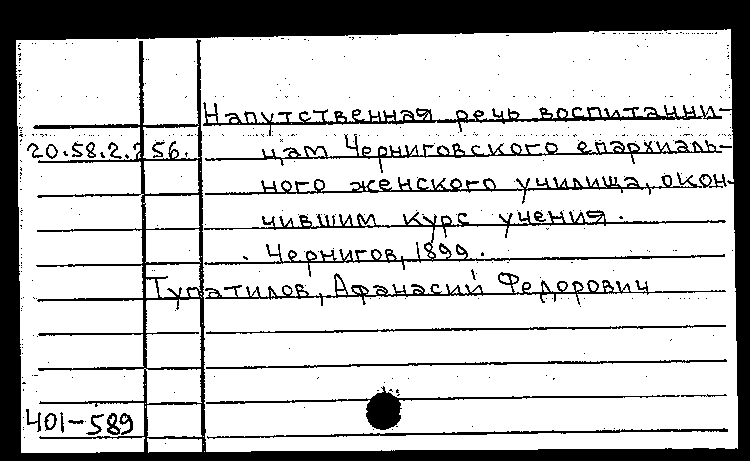 Напутственная речь воспитанни-
20.58.2.256. цам Черниговского епархиаль-
ного женского училища, окон-
чившим курс учения.
Чернигов, 1899.
Тупатилов, Афанасий Федорович
401-589